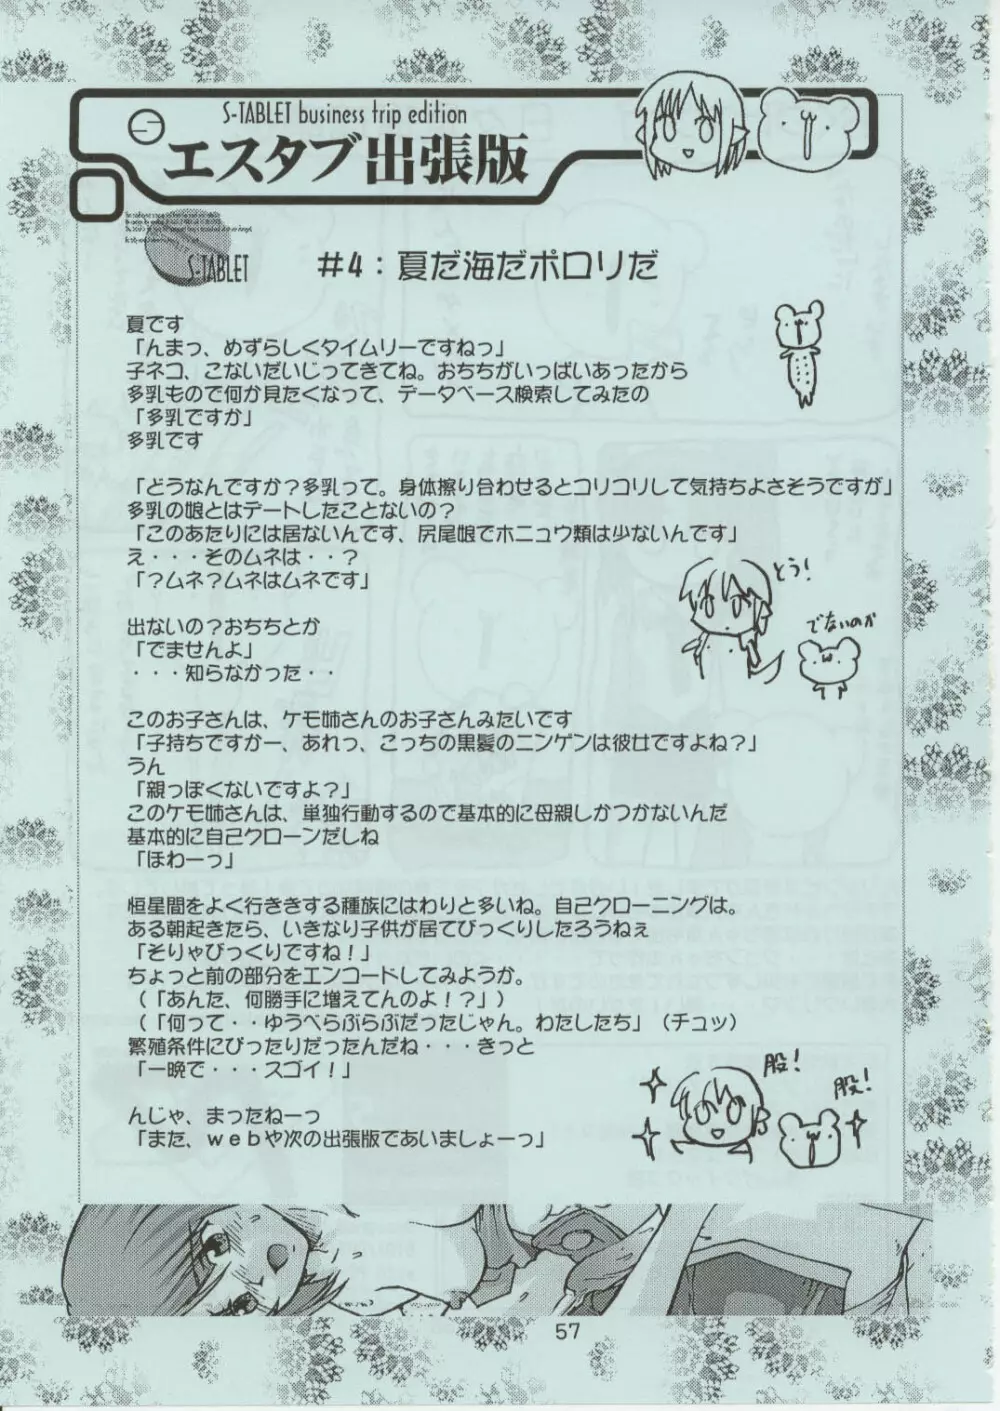 S-TABLET business trip edition
エスタブ出張版
S-TABLET
＃4：夏だ海だポロリだ
夏です
「んまっ、めずらしくタイムリーですねっ」
子ネコ、こないだいじってきてね。おちちがいっぱいあったから
多乳もので何か見たくなって、データベース検索してみたの
「多乳ですか」
多乳です
「どうなんですか？多乳って。身体擦り合わせるとコリコリして気持ちよさそうですが」
多乳の娘とはデートしたことないの？
「このあたりには居ないんです、尻尾娘でホニュウ類は少ないんです」
え・・・そのムネは・・？
「？ムネ？ムネはムネです」
とう！
でないのか
出ないの？おちちとか
「でませんよ」
・・・知らなかった・・
このお子さんは、ケモ姉さんのお子さんみたいです
「子持ちですかー、あれっ、こっちの黒髪のニンゲンは彼女ですよね？」
うん
「親っぽくないですよ？」
このケモ姉さんは、単独行動するので基本的に母親しかつかないんだ
基本的に自己クローンだしね
「ほわーっ」
恒星間をよく行ききする種族にはわりと多いね。自己クローニングは。
ある朝起きたら、いきなり子供が居てびっくりしたろうねぇ
「そりゃびっくりですね！」
ちょっと前の部分をエンコードしてみようか。
（「あんた、何勝手に増えてんのよ！？」）
（「何って・・ゆうべらぶらぶだったじゃん。わたしたち」（チュッ）
繁殖条件にぴったりだったんだね・・・きっと
「一晩で・・・スゴイ！」
股！
股！
んじゃ、まったねーっ
「また、ｗｅｂや次の出張版であいましょーっ」
57